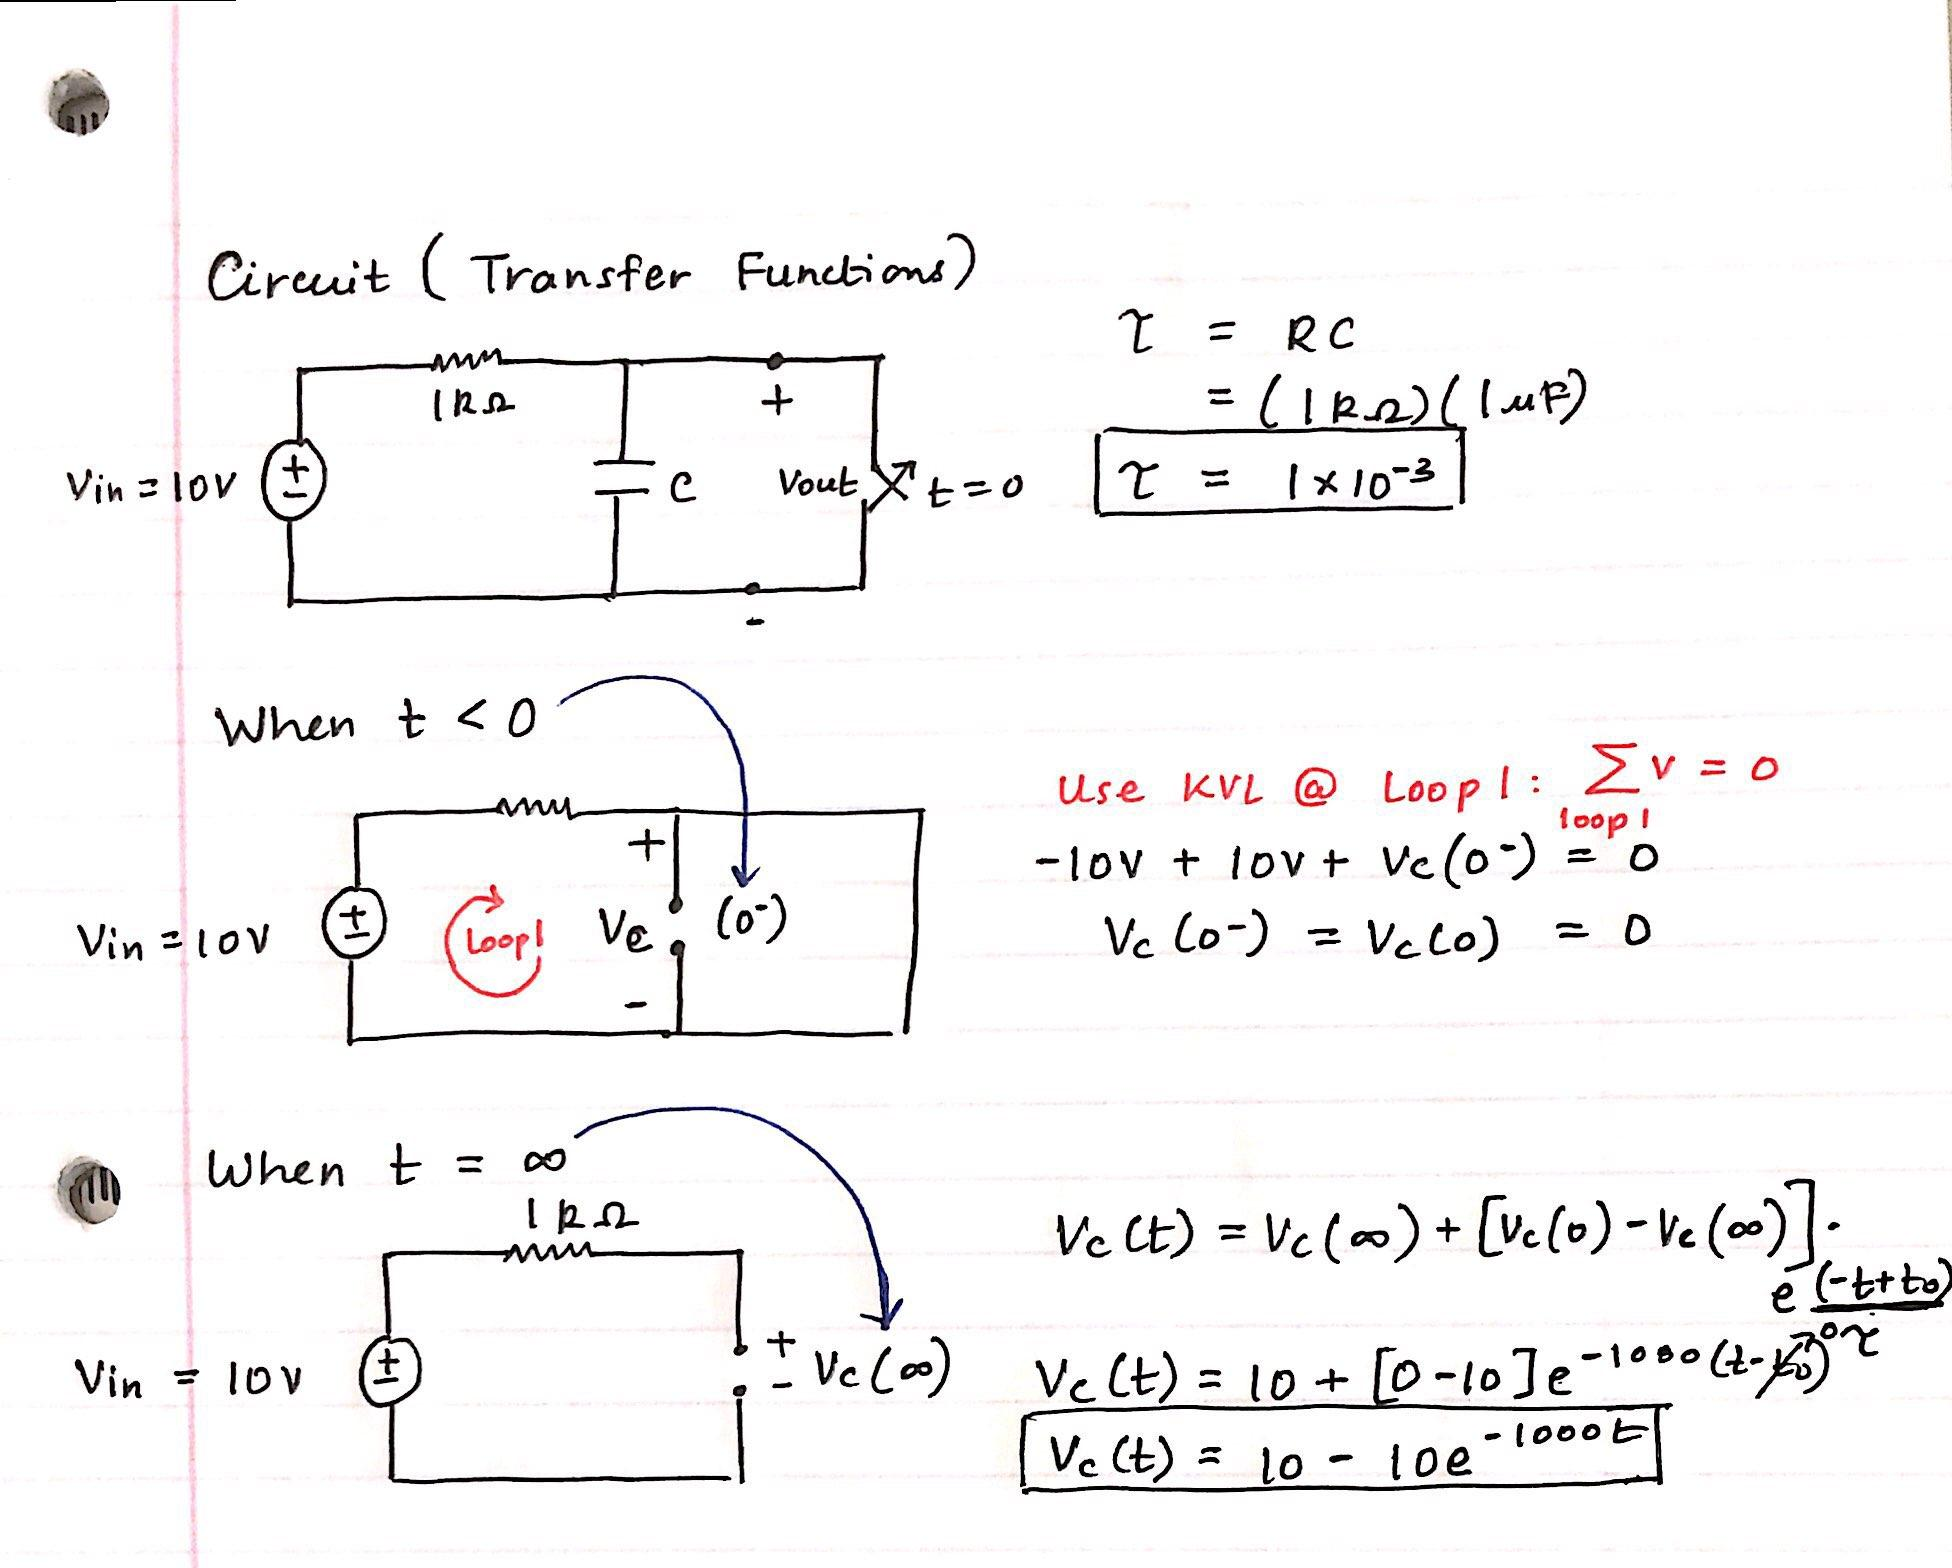 Circuit ( Transfer Functions)
1kΩ
+
Vin = 10V
+
-
C
Vout
t=0
-
τ = RC
= (1kΩ)(1μF)
τ = 1×10⁻³
When t < 0
+
Vin = 10V
+
-
Loop1
Vc
(0⁻)
-
Use KVL @ Loop1: ∑V = 0
loop1
-10V + 10V + Vc(0⁻) = 0
Vc(0-) = Vc(0) = 0
When t = ∞
1kΩ
Vin = 10V
+
-
+
-
Vc(∞)
Vc(t) = Vc(∞) + [Vc(0) - Vc(∞)] ·
e (-t+t₀)
τ
Vc(t) = 10 + [0-10]e^-1000(t-t₀) 0
Vc(t) = 10 - 10e^-1000t